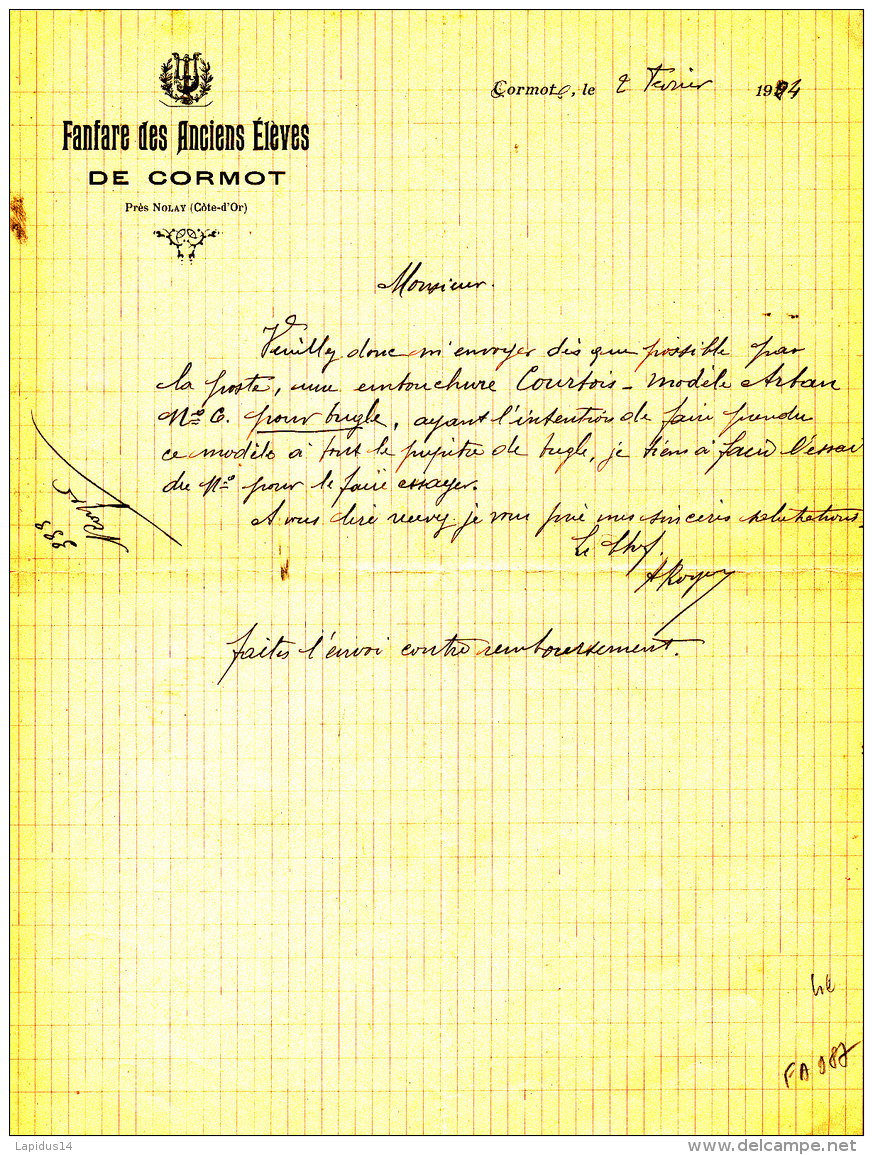 Fanfare des Anciens Élèves
DE CORMOT
Près NOLAY (Côte-d'Or)
Cormot, le 2 Février 1924
Monsieur.
Veuillez donc m'envoyer dès que possible par
la poste, une embouchure Courtois - modèle Arban
N° 6. pour bugle, ayant l'intention de faire prendre
ce modèle à tout le pupitre de bugle, je tiens à faire l'essai
du N° pour le faire essayer.
A vous lire recevez je vous prie mes sincères salutations.
Le Chef.
faites l'envoi contre remboursement.
FA 987
Lapidus14
www.delcampe.net